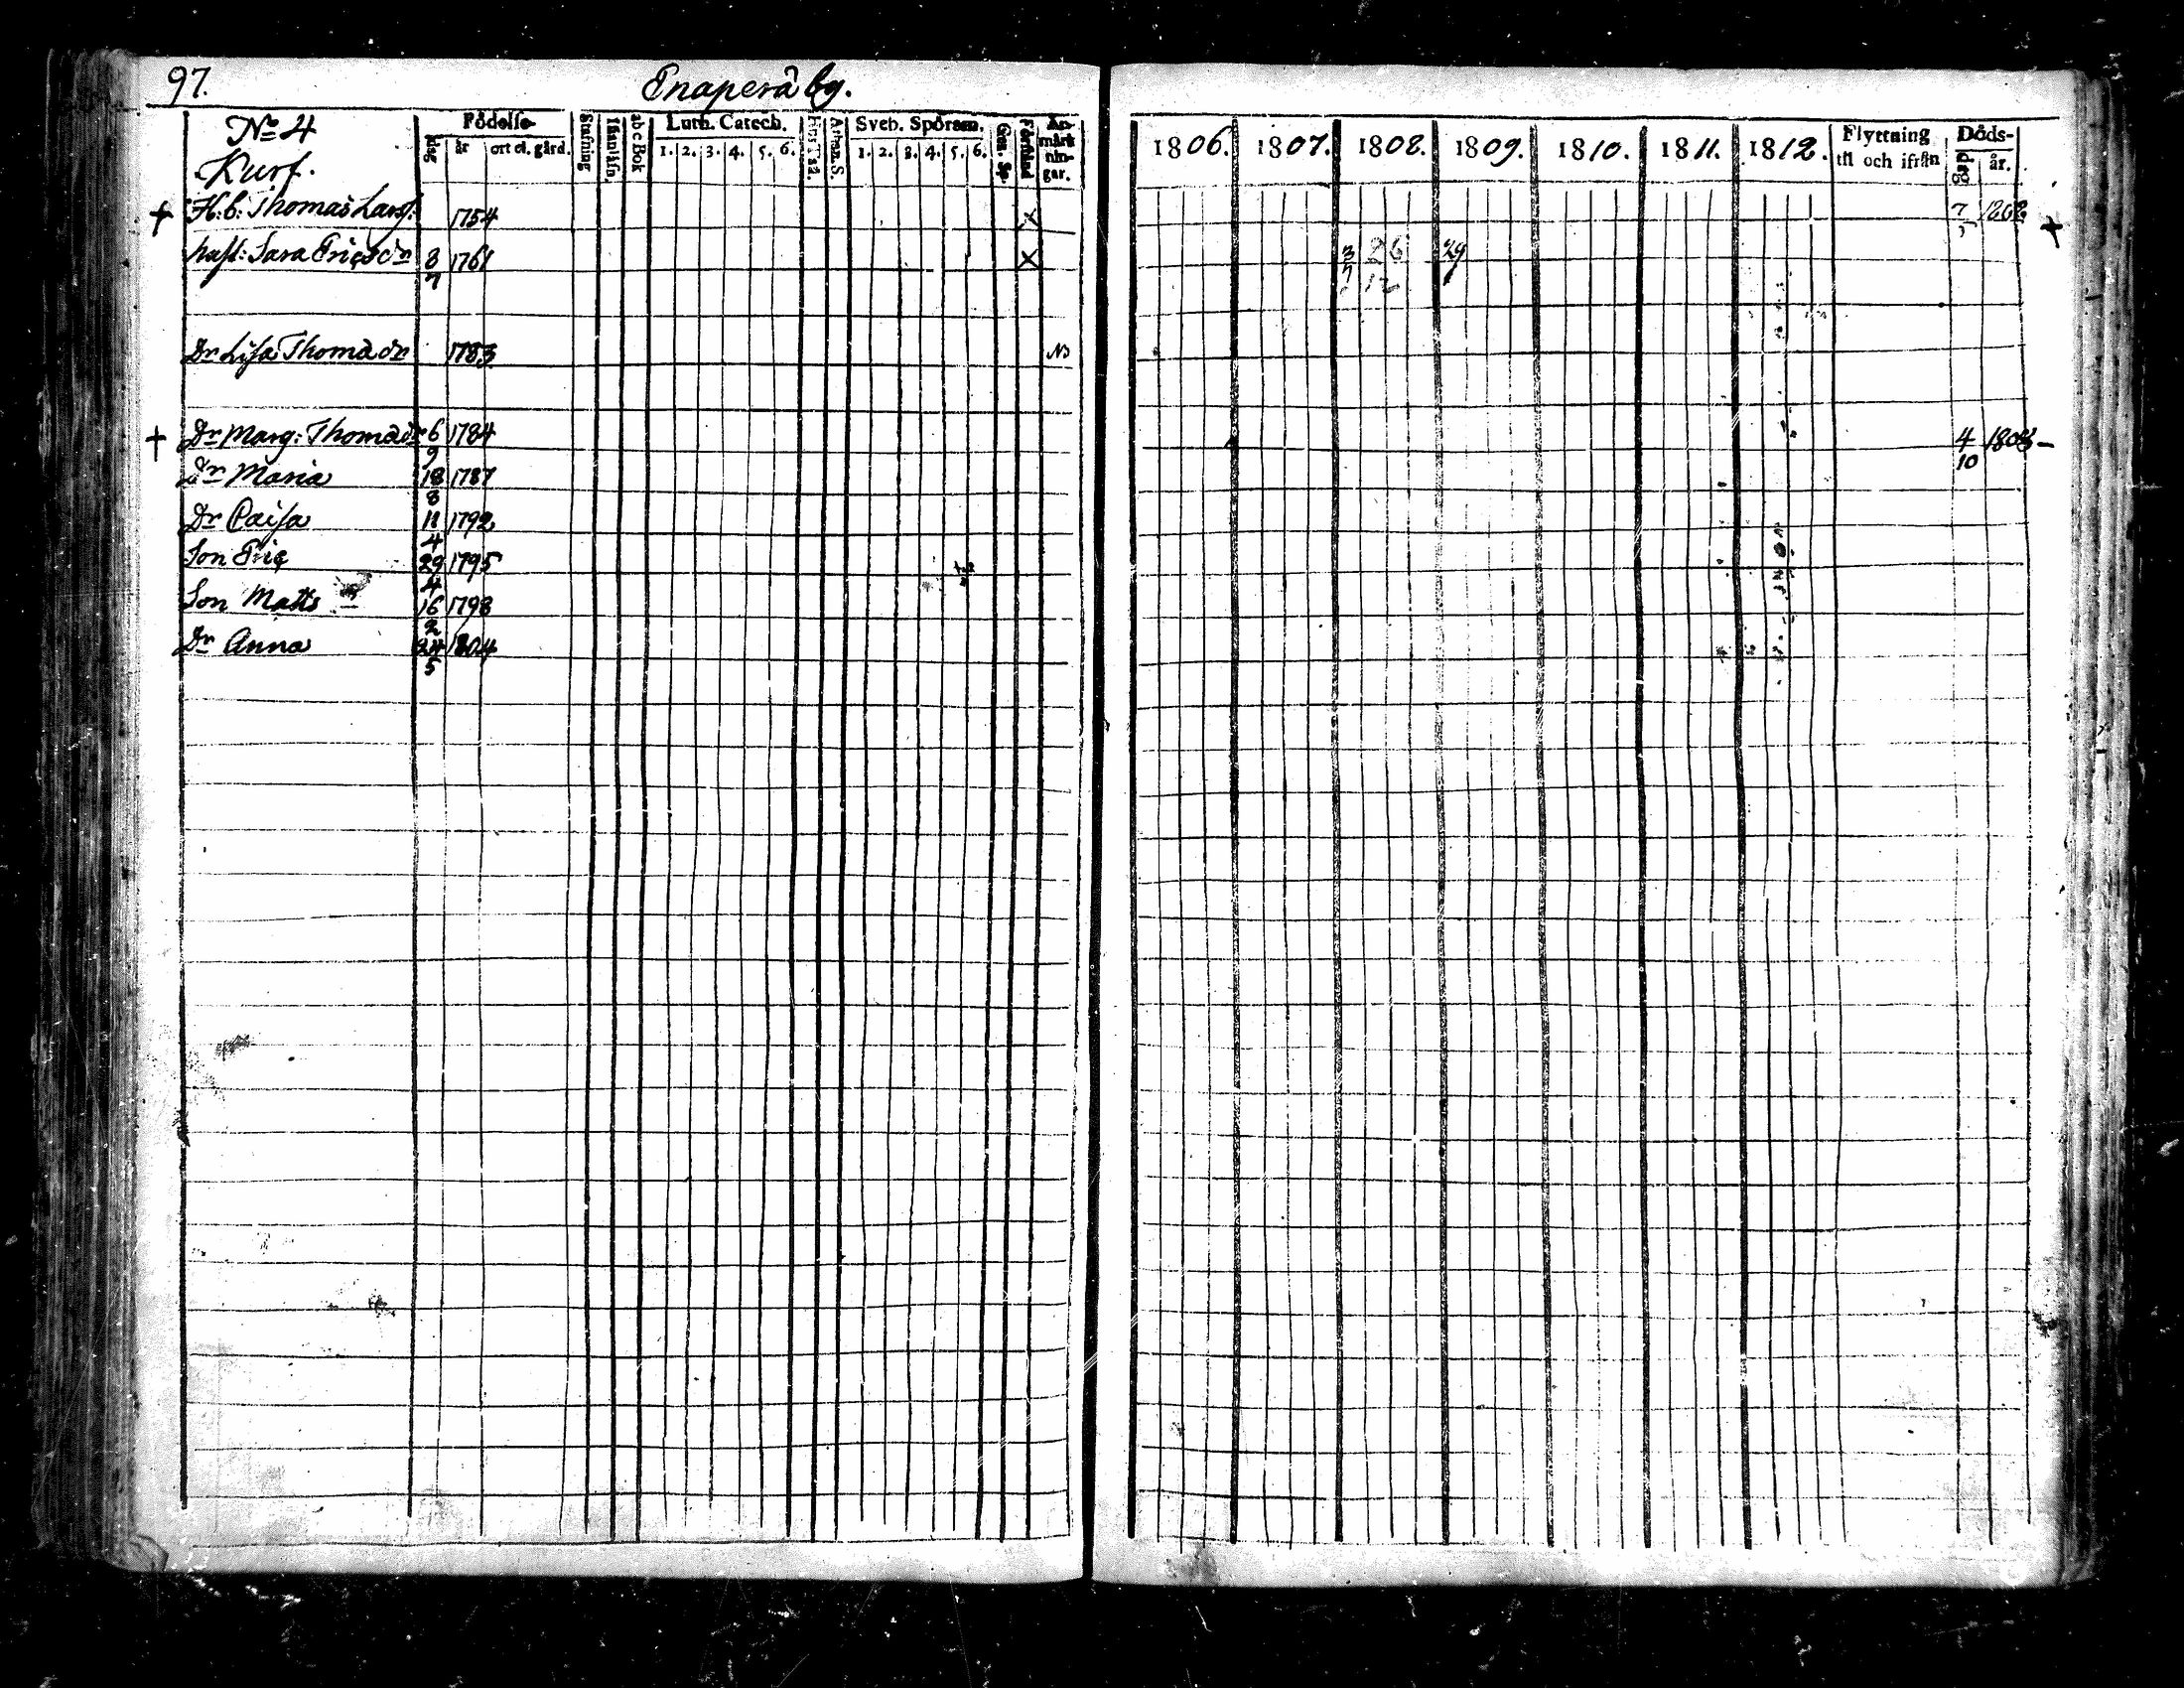 97.
Enaperä by.
No 4
Kurf.
Födelse-
dag år ort el. gård.
Stafning
Innanläsn.
abc Bok
Luth. Catech.
1. 2. 3. 4. 5. 6.
Hus Taf.
Athan. S.
Sveb. Spörsm.
1. 2. 3. 4. 5. 6.
Gen. Sp.
Förstånd
An-
märk
nin-
gar.
1806. 1807. 1808. 1809. 1810. 1811. 1812.
Flyttning
til och ifrån
Döds-
dag år.
† H.b: Thomas Larss: 1754 X 7 1808 †
hust: Sara Ericsdr 8/7 1761 X 3/7 26/12 29
Dr Lisa Thomädr 1783
† Dr Marg: Thomädr 6/9 1784 4/10 1808 –
Dr Maria 18/8 1787
Dr Caisa 11/4 1792
Son Eric 29/4 1795
Son Matts 16/2 1798
Dr Anna 24/5 1804